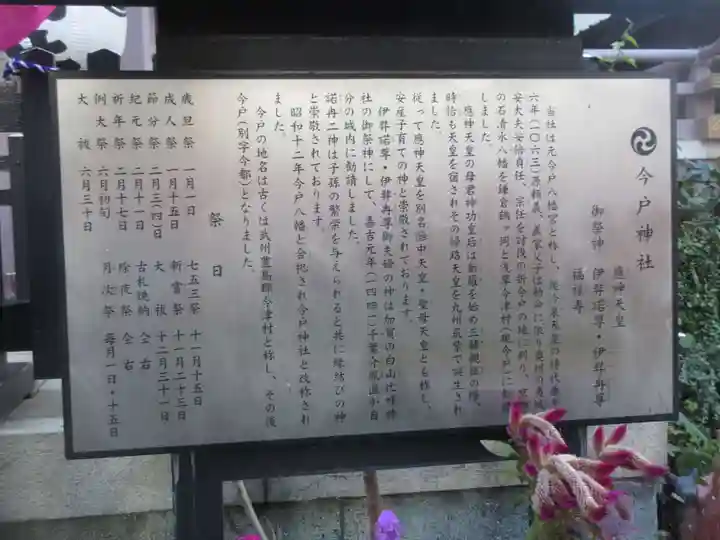 今戸神社
御祭神
應神天皇
伊弉諾尊・伊弉冉尊
福禄寿
当社は元今戸八幡宮と称し、後冷泉天皇の時代康平
六年(一〇六三)源頼義、義家父子は勅命に依り奥州の夷賊
安大夫安倍貞任、宗任を討伐の折今戸の地に到り、京都
の石清水八幡を鎌倉鶴ヶ岡と浅草今津村(現今戸)に勧請
しました。
應神天皇の母君神功皇后は新羅を始め三韓親征の際、
時恰も天皇を宿されその帰路天皇を九州筑紫で誕生され
ました。
従って應神天皇を別名胎中天皇・聖母天皇とも称し、
安産子育ての神と崇敬されております。
伊弉諾尊・伊弉冉尊御夫婦の神は加賀の白山比咩神
社の御祭神にして、嘉吉元年(一四四一)千葉介胤直が自
分の城内に勧請しました。
諾冉二神は子孫の繁栄を与えられると共に縁結びの神
と崇敬されております。
昭和十二年今戸八幡と合祀され今戸神社と改称され
ました。
今戸の地名は古くは武州豊島郡今津村と称し、その後
今戸(別字今都)となりました。
祭日
歳旦祭 一月一日
成人祭 一月十五日
節分祭 二月三(四)日
紀元祭 二月十一日
祈年祭 二月十七日
例大祭 六月初旬
大祓 六月三十日
七五三祭 十一月十五日
新嘗祭 十一月二十三日
大祓 十二月三十一日
古札焼納 仝右
除夜祭 仝右
月次祭 毎月一日・十五日